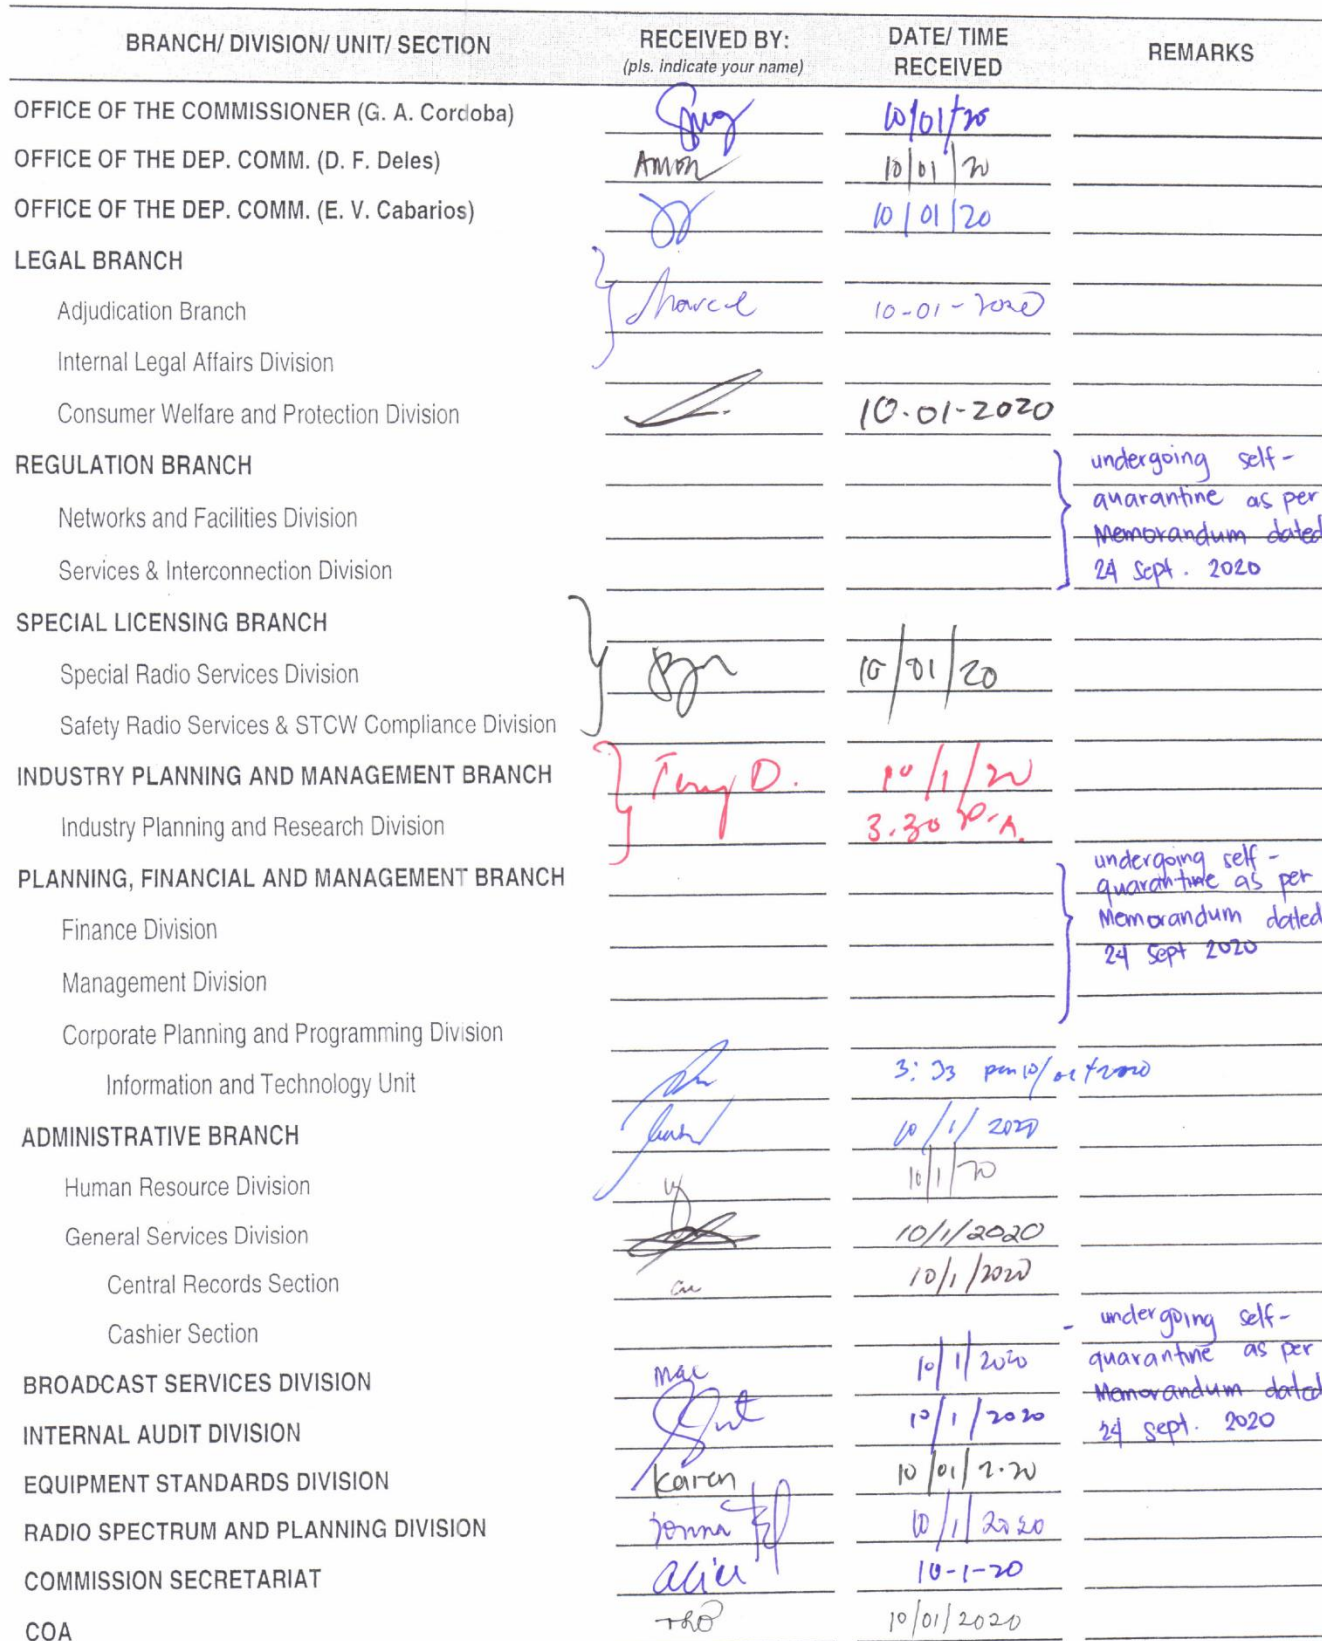 BRANCH/ DIVISION/ UNIT/ SECTION RECEIVED BY: DATE/ TIME REMARKS
(pls. indicate your name) RECEIVED
OFFICE OF THE COMMISSIONER (G. A. Cordoba) 10/01/20
OFFICE OF THE DEP. COMM. (D. F. Deles) Amon 10/01/20
OFFICE OF THE DEP. COMM. (E. V. Cabarios) 10/01/20
LEGAL BRANCH
Adjudication Branch 10-01-2020
Internal Legal Affairs Division
Consumer Welfare and Protection Division 10-01-2020
REGULATION BRANCH undergoing self-
quarantine as per
Networks and Facilities Division Memorandum dated
Services & Interconnection Division 24 Sept. 2020
SPECIAL LICENSING BRANCH
Special Radio Services Division 10/01/20
Safety Radio Services & STCW Compliance Division
INDUSTRY PLANNING AND MANAGEMENT BRANCH 10/1/20
Industry Planning and Research Division 3:30
PLANNING, FINANCIAL AND MANAGEMENT BRANCH undergoing self-
quarantine as per
Finance Division Memorandum dated
24 Sept 2020
Management Division
Corporate Planning and Programming Division
Information and Technology Unit 3:33 pm
ADMINISTRATIVE BRANCH 10/1/2020
Human Resource Division 10/1/20
General Services Division 10/1/2020
Central Records Section 10/1/2020
Cashier Section - undergoing self-
BROADCAST SERVICES DIVISION Mac 10/1/2020 quarantine as per
Memorandum dated
INTERNAL AUDIT DIVISION 10/1/2020 24 Sept. 2020
EQUIPMENT STANDARDS DIVISION Karen 10/01/2020
RADIO SPECTRUM AND PLANNING DIVISION 10/1/2020
COMMISSION SECRETARIAT Alice 10-1-20
COA 10/01/2020